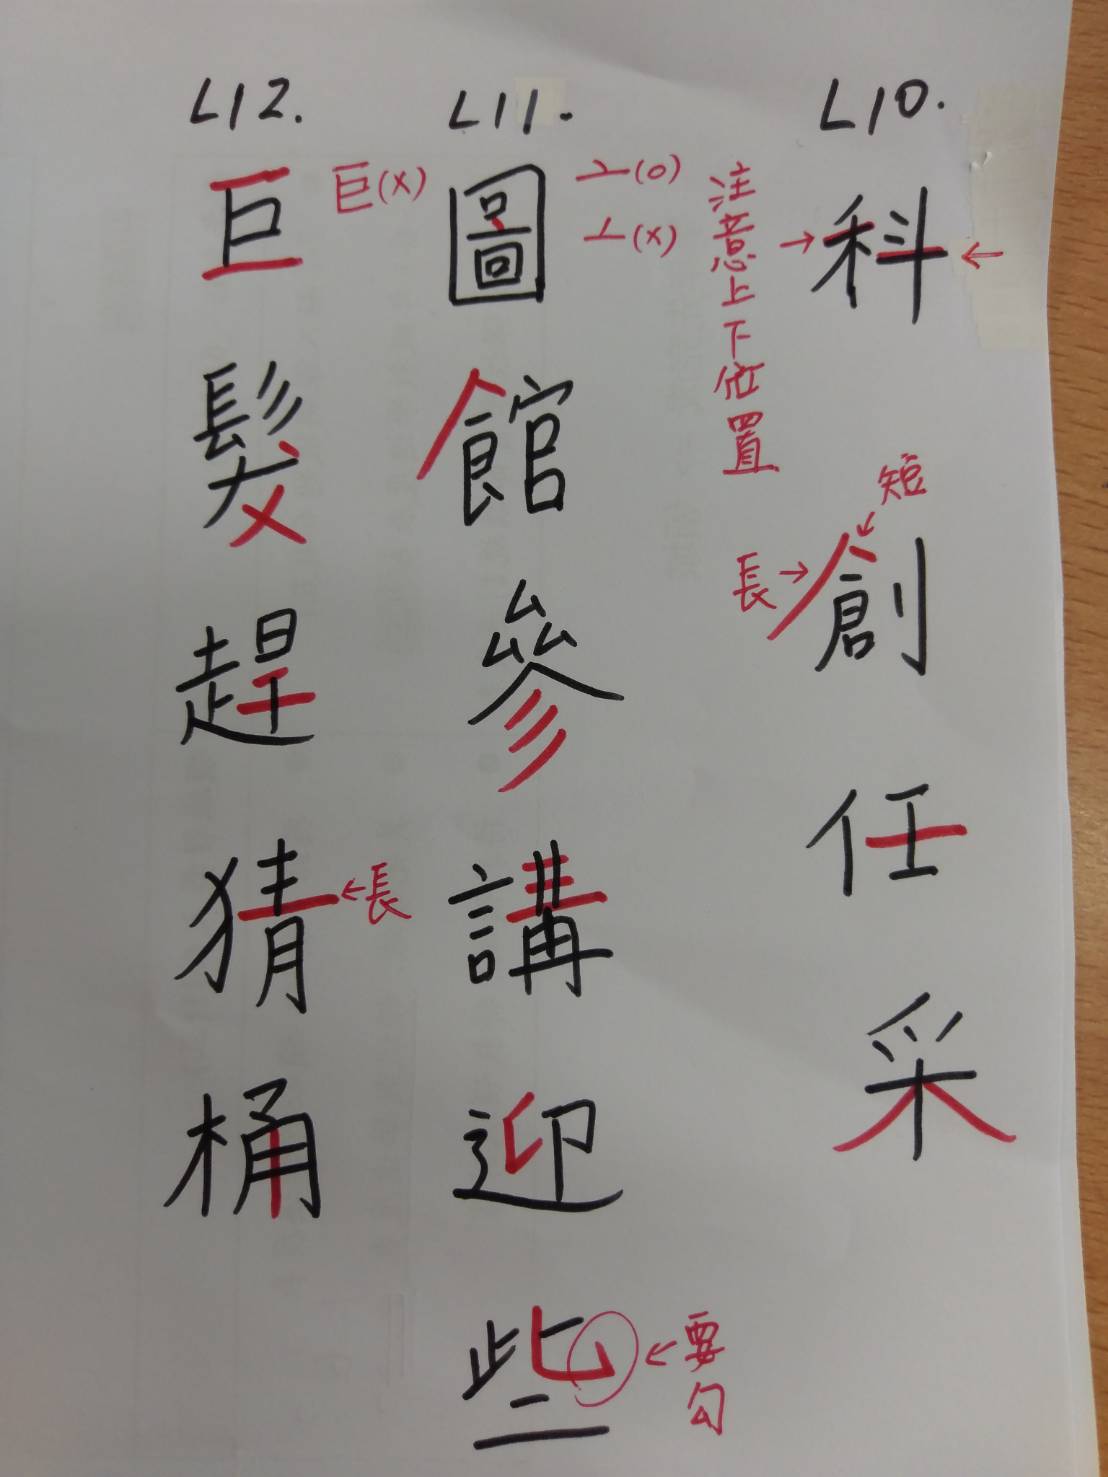 L10.
科
注意上下位置
創
短
長
任
采
L11.
圖
亠(o)
⊥(x)
館
參
講
迎
些
要勾
L12.
巨
巨(x)
髮
趕
猜
長
桶